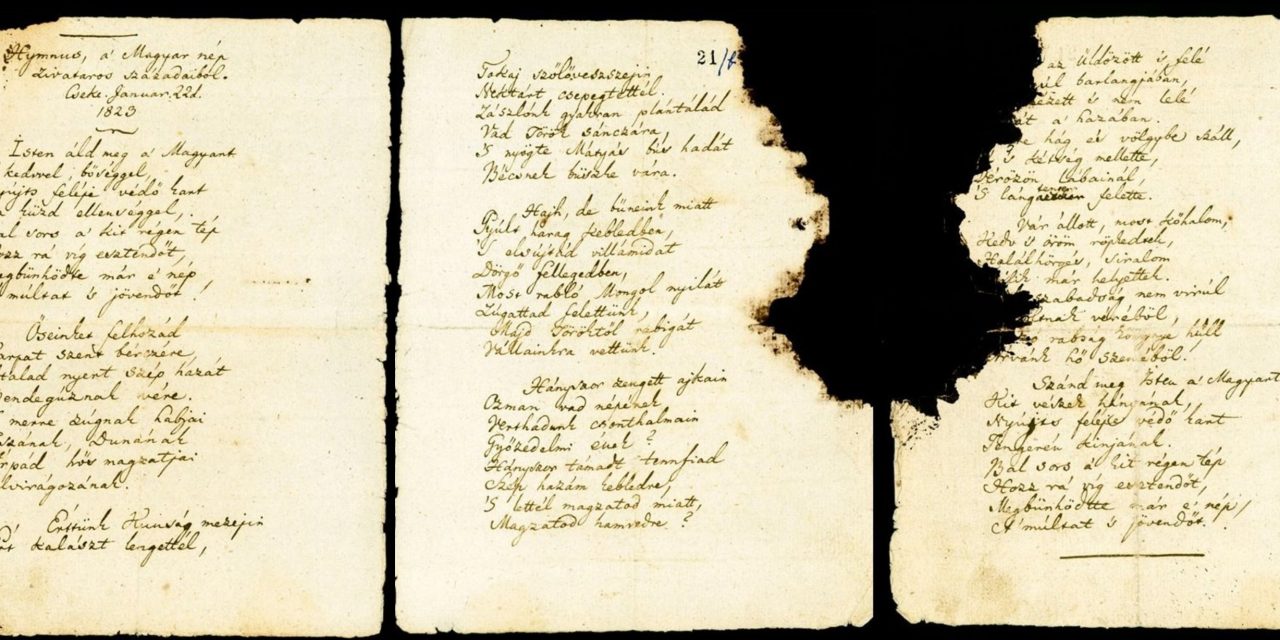 Hymnus, a' Magyar nép
zivataros századaiból.
Cseke. Januar. 22d.
1823
Isten áld meg a' Magyart
kedvvel, bőséggel,
nyújts feléje védő kart
ha küzd ellenséggel,
Bal sors a' kit régen tép
Hozz rá víg esztendőt,
Megbűnhödte már e' nép
múltat 's jövendőt!
Őseinket felhozád
Kárpát szent bérczére,
Általad nyert szép hazát
Bendegúznak vére.
merre zúgnak habjai
Tiszának, Dunának
Árpád hős magzatjai
Felvirágozának.
Értünk Kunság mezején
Ért kalászt lengettél,
21/f
Tokaj szőlővesszején
Nektárt csepegtettél.
Zászlónk gyakran plántálád
Vad Török sánczára,
'S nyögte Mátyás bús hadát
Bécsnek büszke vára.
Hajh, de bűneink miatt
Gyúlt harag kebledben,
'S elsújtád villámidat
Dörgő fellegedben,
Most rabló Mongol nyilát
Zúgattad felettünk,
Majd Töröktől rabigát
Vállainkra vettünk.
Hányszor zengett ajkain
Ozman vad népének
Vert hadunk csonthalmain
Győzedelmi ének?
Hányszor támadt tennfiad
Szép hazám kebledre,
'S lettél magzatod miatt,
Magzatod hamvedre?
az üldözött 's felé
barlangjában,
's nem lelé
a' hazában.
hág és völgybe száll,
's kétség mellette,
Vérözön lábainál,
'S lángtenger felette.
Vár állott, most kőhalom,
Kedv 's öröm röpkedtek,
Halálhörgés, siralom
már helyettek.
szabadság nem virúl
véréből,
rabság könnyű hull
Árvánk hő szeméből.
Szánd meg Isten a' Magyart
Kit vészek hányának,
Nyújts feléje védő kart
Tengerén kínjának.
Bal sors a' kit régen tép
Hozz rá víg esztendőt,
Megbűnhödte már e' nép
A' múltat 's jövendőt.